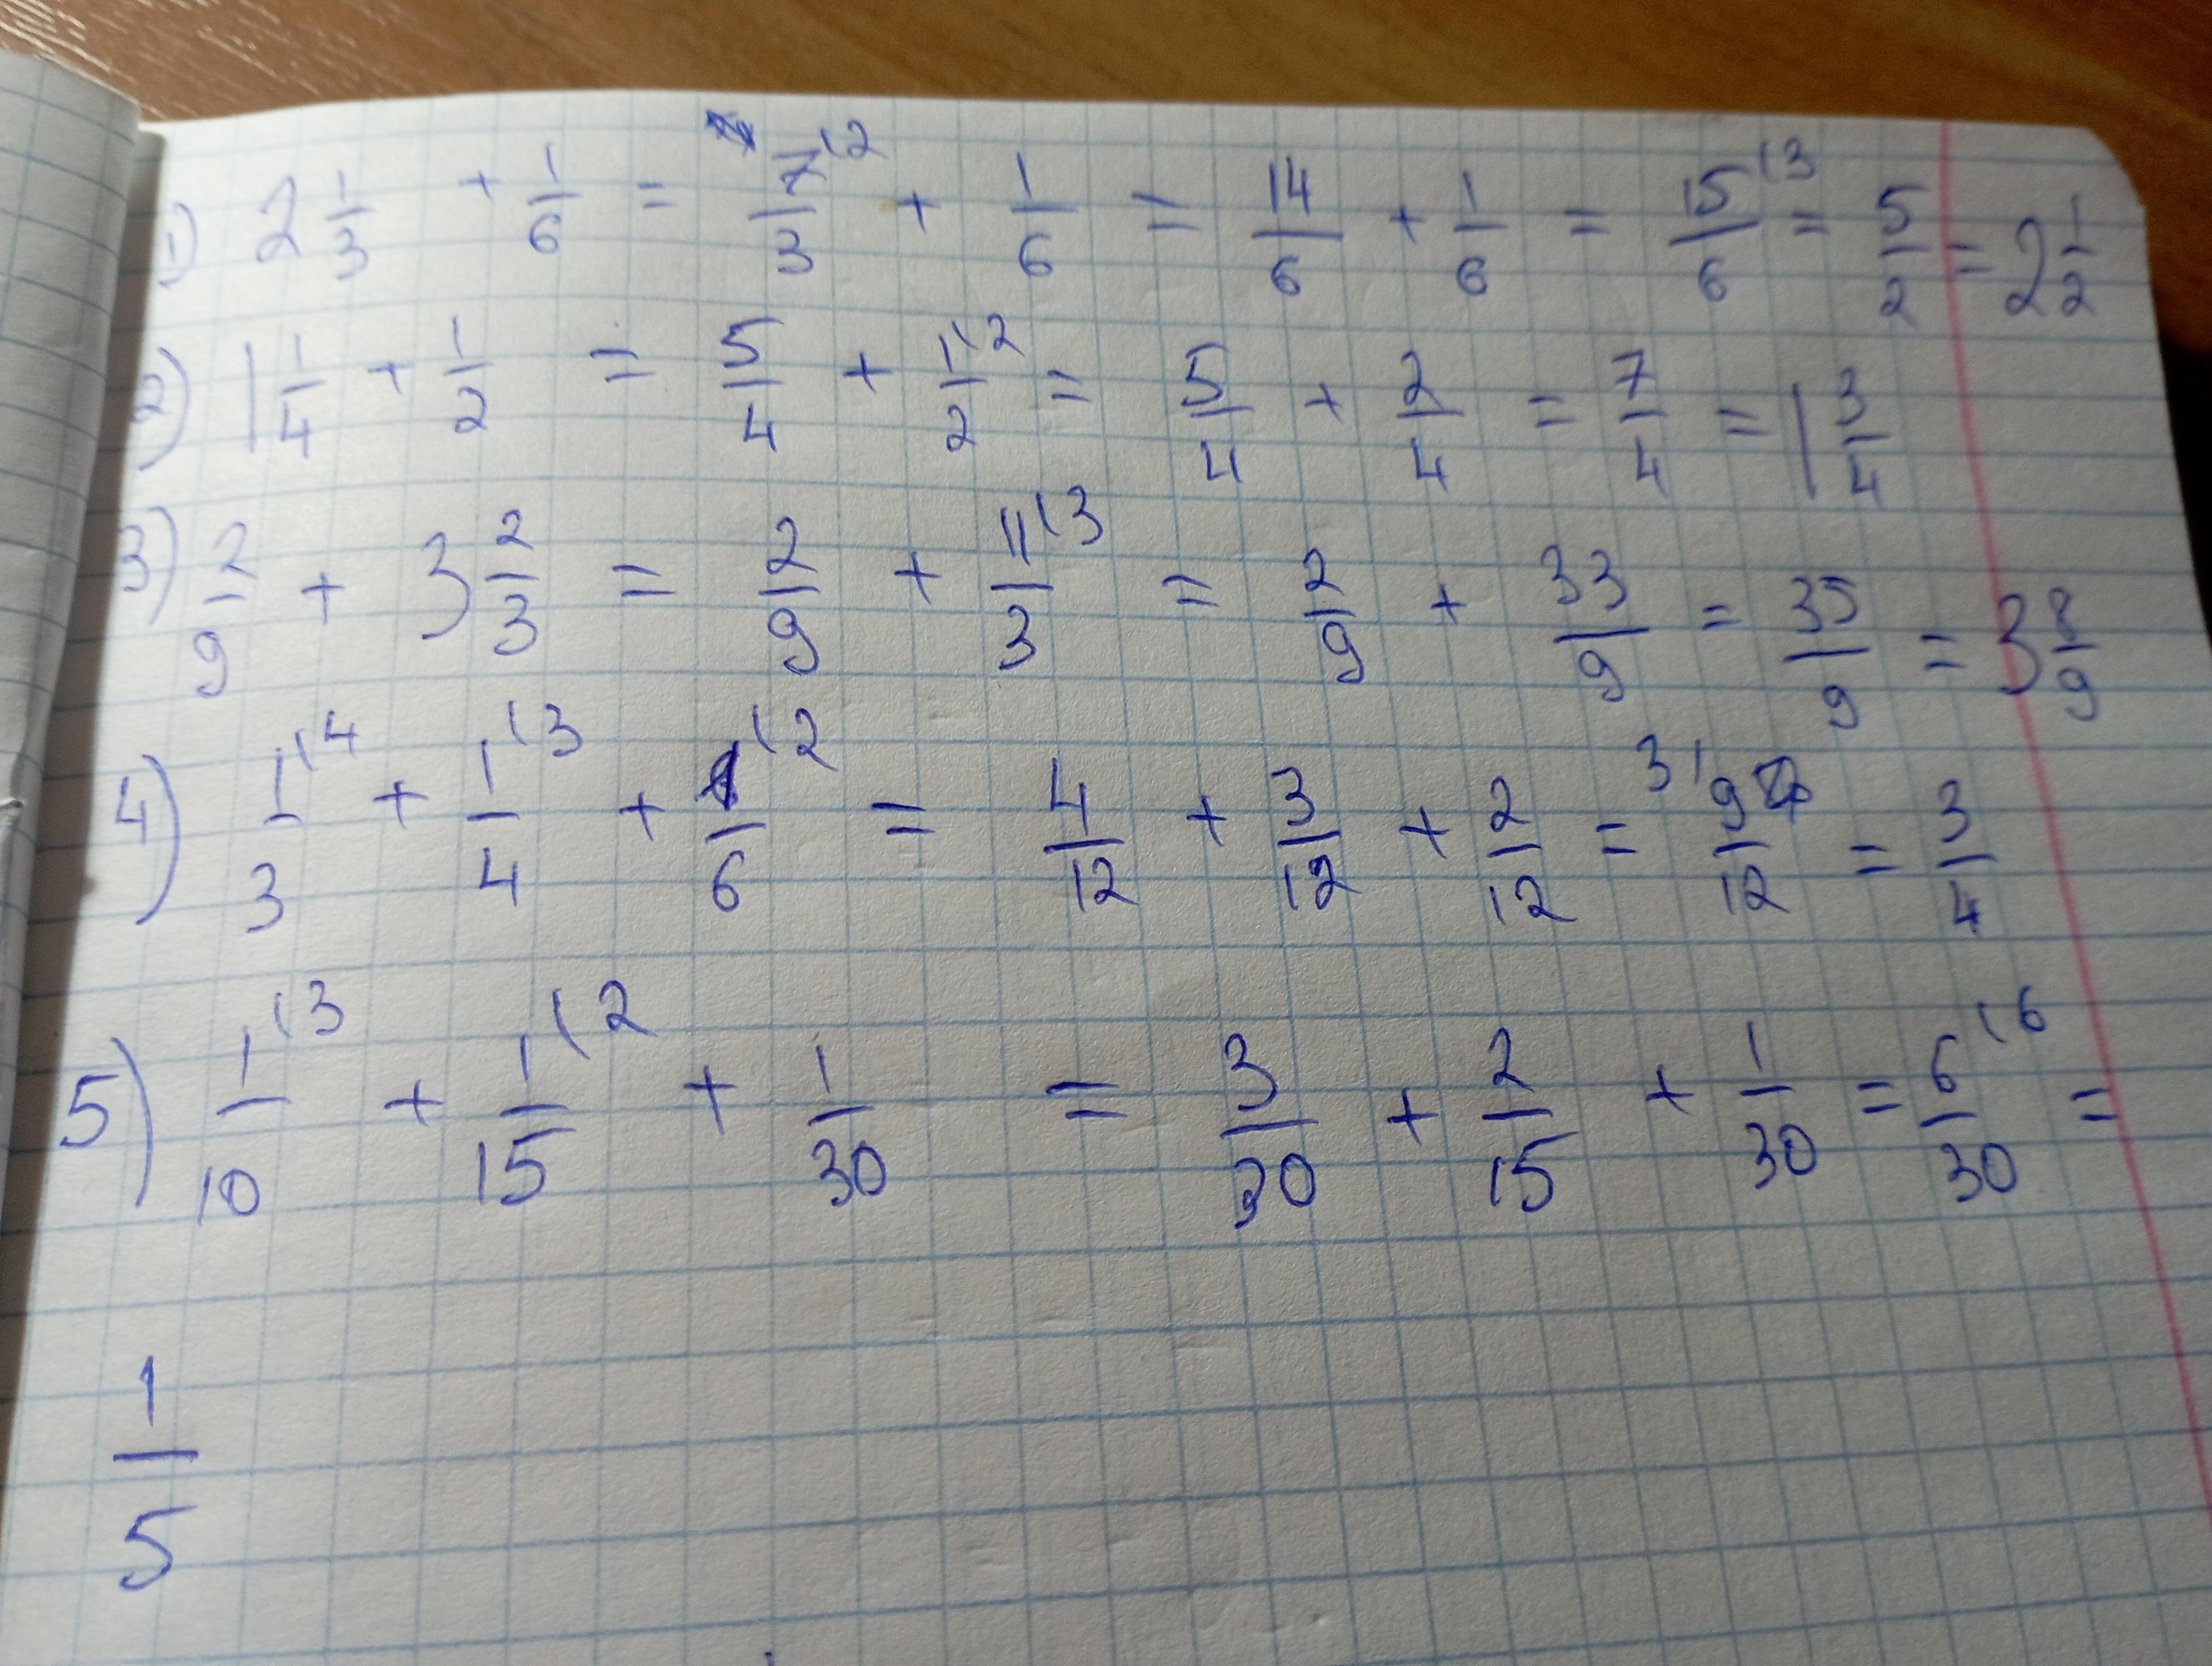 1) 2 1/3 + 1/6 = 7/3 (2 + 1/6 = 14/6 + 1/6 = 15/6 (3 = 5/2 = 2 1/2
2) 1 1/4 + 1/2 = 5/4 + 1/2 (2 = 5/4 + 2/4 = 7/4 = 1 3/4
3) 2/9 + 3 2/3 = 2/9 + 11/3 (3 = 2/9 + 33/9 = 35/9 = 3 8/9
4) 1/3 (4 + 1/4 (3 + 1/6 (2 = 4/12 + 3/12 + 2/12 = 3) 9/12 = 3/4
5) 1/10 (3 + 1/15 (2 + 1/30 = 3/30 + 2/15 + 1/30 = 6/30 (6 =
1/5